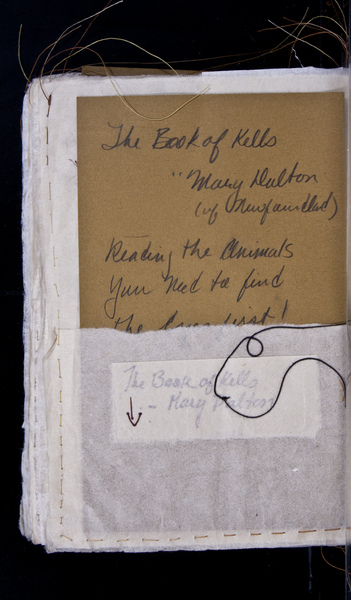 The Book of Kells
" Mary Dalton
(of Newfoundland)
Reading the Animals
you need to find
the first!
The Book of Kells
- Mary Dalton